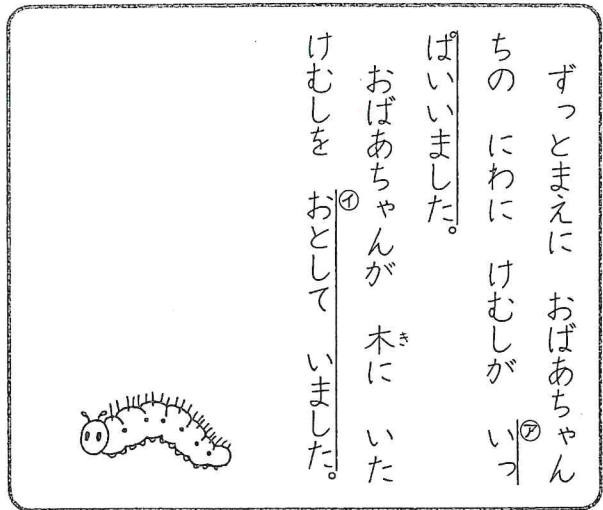 ずっとまえに おばあちゃん
ちの にわに けむしが ㋐いっ
ぱいいました。
おばあちゃんが 木(き)に いた
けむしを ㋑おとして いました。